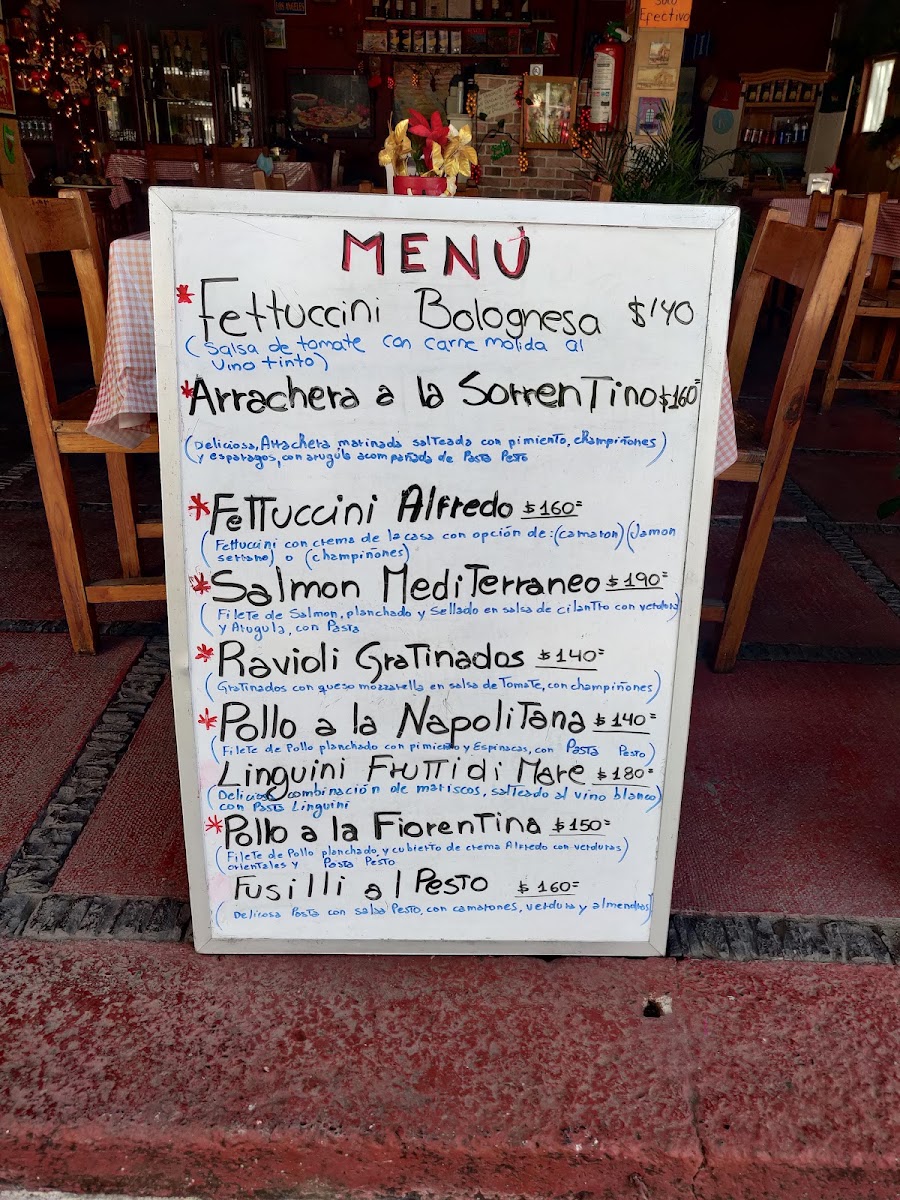 Solo
Efectivo
LOS ANGELES
MENÚ
* Fettuccini Bolognesa $140
(Salsa de tomate con carne molida al
vino tinto)
* Arrachera a la Sorrentino $160=
(Deliciosa, Arrachera marinada salteada con pimiento, champiñones)
y esparagos, con arugula acompañada de Pasta Pesto
* Fettuccini Alfredo $160=
(Fettuccini con crema de la casa con opción de: (camaron) (Jamon
serrano) o (champiñones)
* Salmon Mediterraneo $190=
(Filete de Salmon, planchado y Sellado en salsa de cilantro con verdura)
y Arugula, con Pasta
* Ravioli Gratinados $140=
(Gratinados con queso mozzarella en salsa de Tomate, con champiñones)
* Pollo a la Napolitana $140=
(Filete de Pollo planchado con pimiento y Espinacas, con Pasta Pesto)
Linguini Frutti di Mare $180=
(Deliciosa combinación de mariscos, salteado al vino blanco)
con Pasta Linguini
* Pollo a la Fiorentina $150=
(Filete de Pollo planchado y cubierto de crema Alfredo con verduras)
orientales y Pasta Pesto
Fusilli al Pesto $160=
(Deliciosa Pasta con salsa Pesto, con camarones, verdura y almendras)